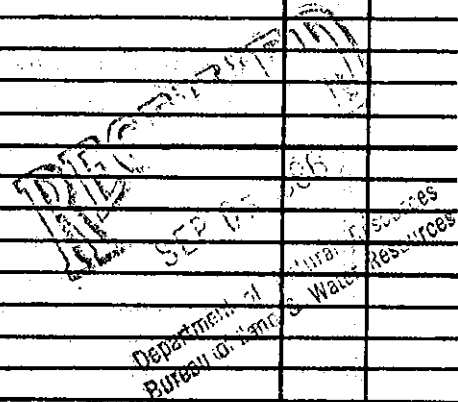 RECEIVED
SEP
Department of Natural Resources
Bureau of Land & Water Resources